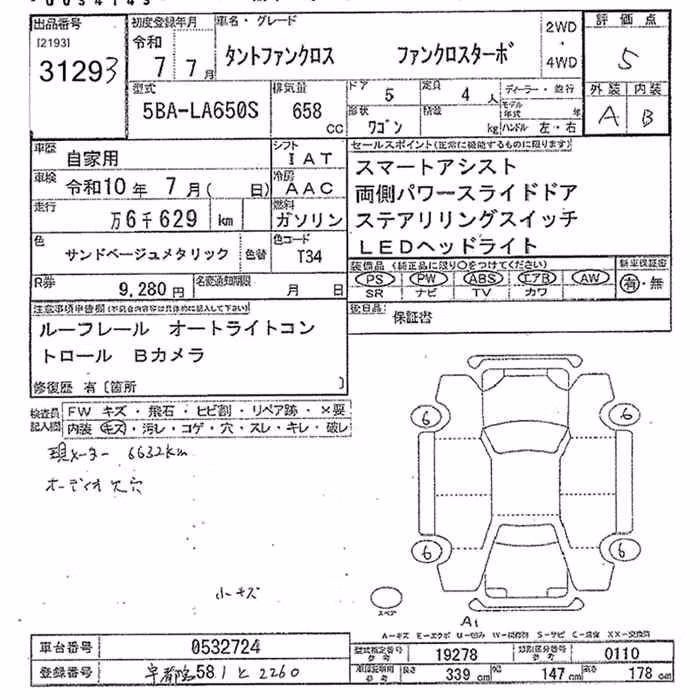 出品番号 [2193] 31293
初度登録年月 令和 7年 7月
車名・グレード タントファンクロス ファンクロスターボ
2WD ・ 4WD
評価点 5
外装 A 内装 B
型式 5BA-LA650S
排気量 658 CC
ドア 5 定員 4人
形状 ワゴン 積載 kg
ディーラー・並行
モデル年式 年
ハンドル 左・右
車歴 自家用
シフト IAT
車検 令和10年 7月( 日)
冷房 AAC
走行 万6千629 km
燃料 ガソリン
色 サンドベージュメタリック 色替
色コード T34
R券 9,280円
名変通知期限 月 日
セールスポイント(正常に機能するものに限ります)
スマートアシスト
両側パワースライドドア
ステアリリングスイッチ
LEDヘッドライト
装備品(純正品に限り○をつけてください)
PS PW ABS エアB AW
SR ナビ TV カワ
新車保証書 有・無
後日品 保証書
注意事項申告欄(不具合内容は具体的に記入して下さい)
ルーフレール オートライトコン
トロール Bカメラ
修復歴 有〔箇所 〕
検査員記入欄
FW キズ・飛石・ヒビ割・リペア跡・×要
内装 キズ・汚レ・コゲ・穴・スレ・キレ・破レ
現メーター 6632km
オーディオ欠穴
小キズ
6 6
6 6
スペア
A1
A-キズ E-エクボ U-凹み W-補修跡 S-サビ C-腐食 XX-交換済
車台番号 0532724
登録番号 宇都宮 581 と 2260
型式指定番号 参考 19278
類別区分番号 参考 0110
参考 長さ 339 cm 幅 147 cm 高さ 178 cm